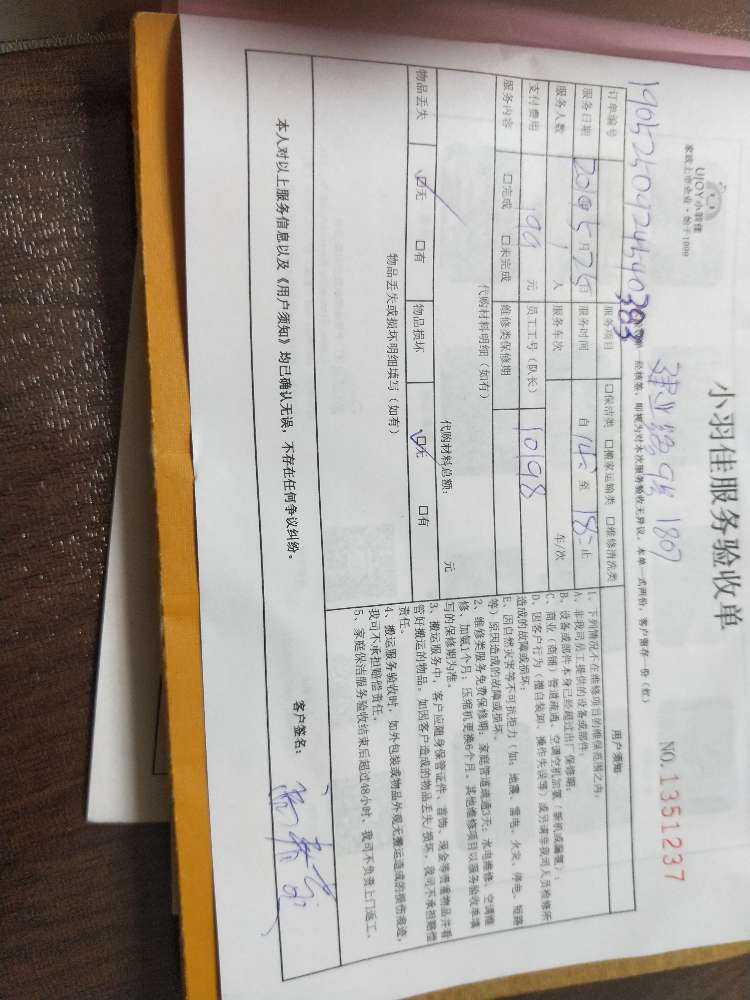 UJOY小羽佳
家政上市企业·始于1999
小羽佳服务验收单
NO.1351237
建业路9号1807
经核签，即视为对本次服务验收无异议，本单一式两份，客户留存一份（红）
订单编号
1905250924540383
服务项目 □保洁类 □搬家运输类 □维修清洗类
服务日期 2019 5月25日 服务时间 自 14: 至 18: 止
服务人数 1 人 服务车次 车/次
支付费用 元 员工工号（队长） 10198
服务内容 □完成 □未完成 维修类保修期
代购材料明细（如有）
代购材料总额： 元
物品丢失 ☑无 □有 物品损坏 ☑无 □有
物品丢失或损坏明细填写（如有）
用户须知
1、下列情况不在维修项目的维保范围之内：
A、非我司员工提供的设备或部件；
B、设备或部件本身已经超过出厂保修期；
C、商业（商铺）管道疏通、空调空机加氨（新机或漏氨）；
D、因客户行为（擅自装卸、操作失误等）或另请非我司人员检修所
造成的故障或损坏；
E、因自然灾害等不可抗拒力（如：地震、雷电、火灾、停电、短路
等）原因造成的故障或损坏。
2、维修类服务免费保修期：家庭管道疏通3天；水电维修、空调维
修、加氨1个月；压缩机更换6个月。其他维修项目以服务验收单填
写的保修期为准。
3、搬运服务中，客户应随身保管证件、首饰、现金等贵重物品并看
管好搬运的物品。如因客户造成的物品丢失/损坏，我司不承担赔偿
责任。
4、搬运服务验收时，如外包装或物品外观无搬运造成的损伤痕迹，
我司可不承担赔偿责任。
5、家庭保洁服务验收结束后超过48小时，我司不负责上门返工。
本人对以上服务信息以及《用户须知》均已确认无误，不存在任何争议纠纷。
客户签名：